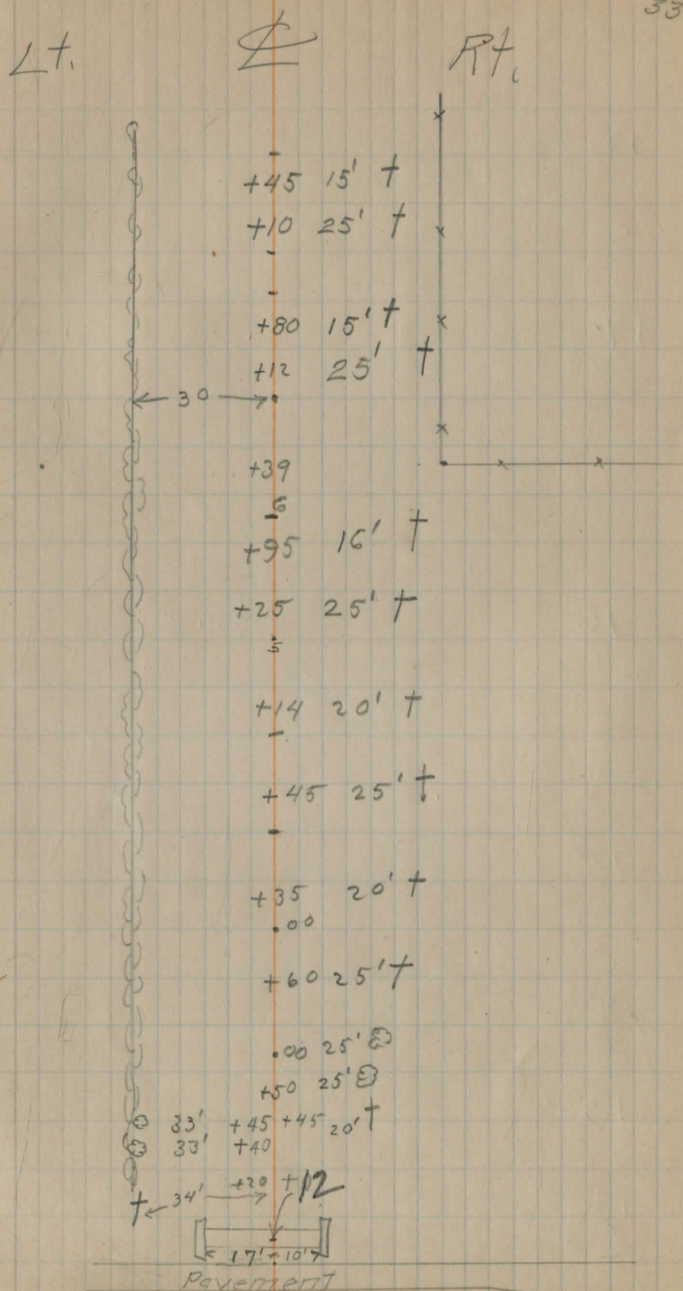 33
Lt. ℄ Rt.
+45 15' †
+10 25' †
+80 15' †
+12 25' †
30
+39
6
+95 16' †
+25 25' †
5
+14 20' †
+45 25' †
+35 20' †
00
+60 25' †
00 25'
+50 25'
33' +45 +45 20' †
33' +40
† 34' +20 +12
17' 10'
Pavement